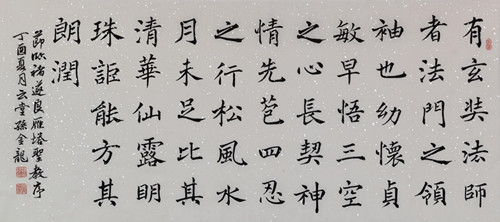 有玄奘法師
者法門之領
袖也幼懷貞
敏早悟三空
之心長契神
情先苞四忍
之行松風水
月未足比其
清華仙露明
珠詎能方其
朗潤
節臨褚遂良雁塔聖教序
丁酉夏月云堂孫金龍